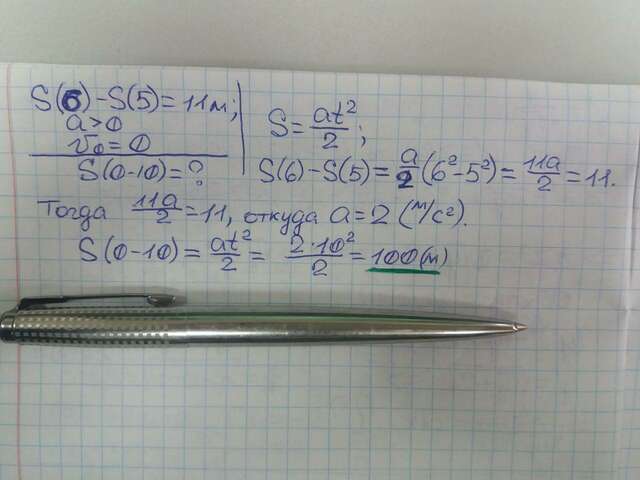 S(6)-S(5)=11м;
a>0
v₀=0
S(0-10)=?
S=at²/2;
S(6)-S(5)=a/2(6²-5²)=11a/2=11.
Тогда 11a/2=11, откуда a=2 (м/с²).
S(0-10)=at²/2=2·10²/2=100(м)